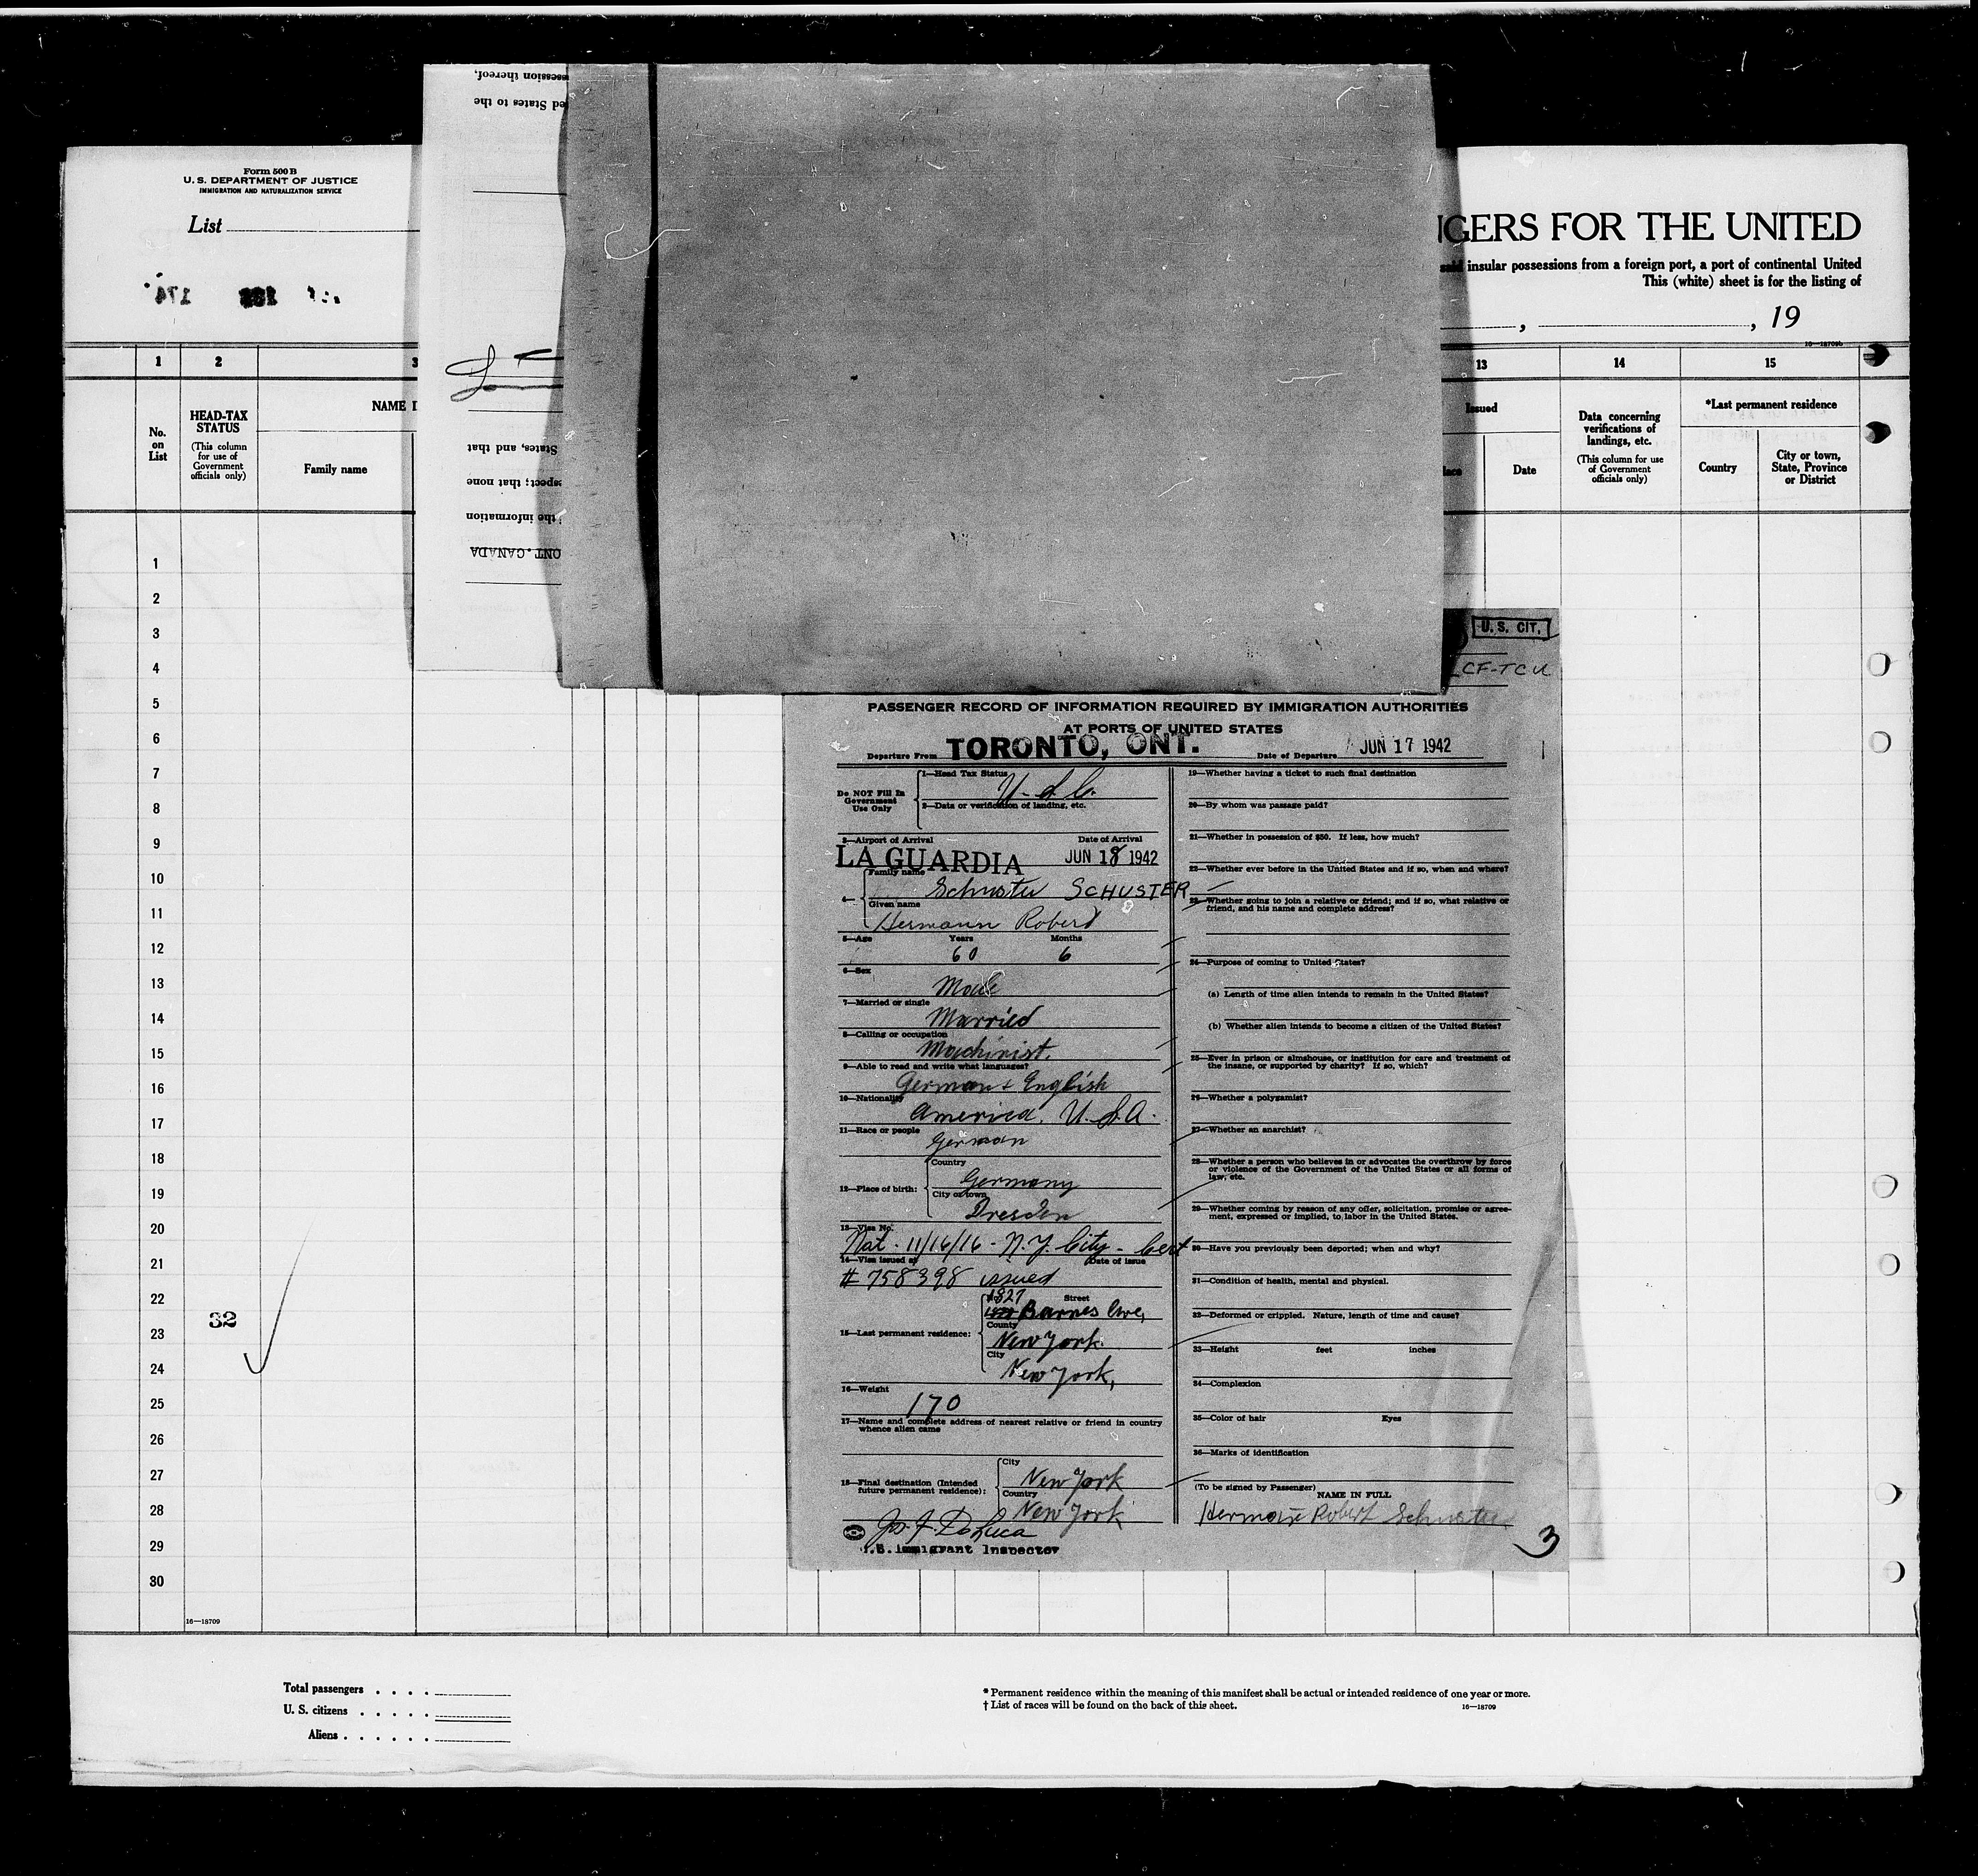 Form 500 B
U. S. DEPARTMENT OF JUSTICE
IMMIGRATION AND NATURALIZATION SERVICE
List
1 2 3
No. on List
HEAD-TAX STATUS
(This column for use of Government officials only)
NAME I
Family name
1
2
3
4
5
6
7
8
9
10
11
12
13
14
15
16
17
18
19
20
21
22
23
24
25
26
27
28
29
30
32
16—18709
Total passengers . . . .
U. S. citizens . . . . .
Aliens . . . . . .
session thereof,
ed States to the
States, and that
spect; that none
the information
ONT. CANADA
NGERS FOR THE UNITED
said insular possessions from a foreign port, a port of continental United
This (white) sheet is for the listing of
, , 19
16—18709b
13 14 15
Issued
Date
Data concerning verifications of landings, etc.
(This column for use of Government officials only)
*Last permanent residence
Country
City or town, State, Province or District
U. S. CIT.
CF-TCU
PASSENGER RECORD OF INFORMATION REQUIRED BY IMMIGRATION AUTHORITIES
AT PORTS OF UNITED STATES
Departure From TORONTO, ONT. Date of Departure JUN 17 1942
Do NOT Fill In Government Use Only
1—Head Tax Status U.S.C.
2—Data or verification of landing, etc.
3—Airport of Arrival Date of Arrival
LA GUARDIA JUN 18 1942
4—
Family name
Schuster SCHUSTER
Given name
Hermann Robert
5—Age Years Months
60 6
6—Sex
Male
7—Married or single
Married
8—Calling or occupation
Machinist.
9—Able to read and write what languages?
German + English
10—Nationality
America. U.S.A.
11—Race or people
German
12—Place of birth:
Country
Germany
City or town
Dresden
13—Visa No.
Nat. 11/16/16 - N.Y. City - Cert
14—Visa issued at Date of issue
# 758398 issued
15—Last permanent residence:
1827 Street
Barnes Ave,
County
New York.
City
New York,
16—Weight
170
17—Name and complete address of nearest relative or friend in country
whence alien came
18—Final destination (Intended
future permanent residence):
City
New York
Country
New York
Jos. F. DeLuca
U.S. Immigrant Inspector
19—Whether having a ticket to such final destination
20—By whom was passage paid?
21—Whether in possession of $50. If less, how much?
22—Whether ever before in the United States and if so, when and where?
23—Whether going to join a relative or friend; and if so, what relative or
friend, and his name and complete address?
24—Purpose of coming to United States?
(a) Length of time alien intends to remain in the United States?
(b) Whether alien intends to become a citizen of the United States?
25—Ever in prison or almshouse, or institution for care and treatment of
the insane, or supported by charity? If so, which?
26—Whether a polygamist?
27—Whether an anarchist?
28—Whether a person who believes in or advocates the overthrow by force
or violence of the Government of the United States or all forms of
law, etc.
29—Whether coming by reason of any offer, solicitation, promise or agree-
ment, expressed or implied, to labor in the United States.
30—Have you previously been deported; when and why?
31—Condition of health, mental and physical.
32—Deformed or crippled. Nature, length of time and cause?
33—Height feet inches
34—Complexion
35—Color of hair Eyes
36—Marks of identification
(To be signed by Passenger)
NAME IN FULL
Hermann Robert Schuster
3
* Permanent residence within the meaning of this manifest shall be actual or intended residence of one year or more.
† List of races will be found on the back of this sheet.
16—18709